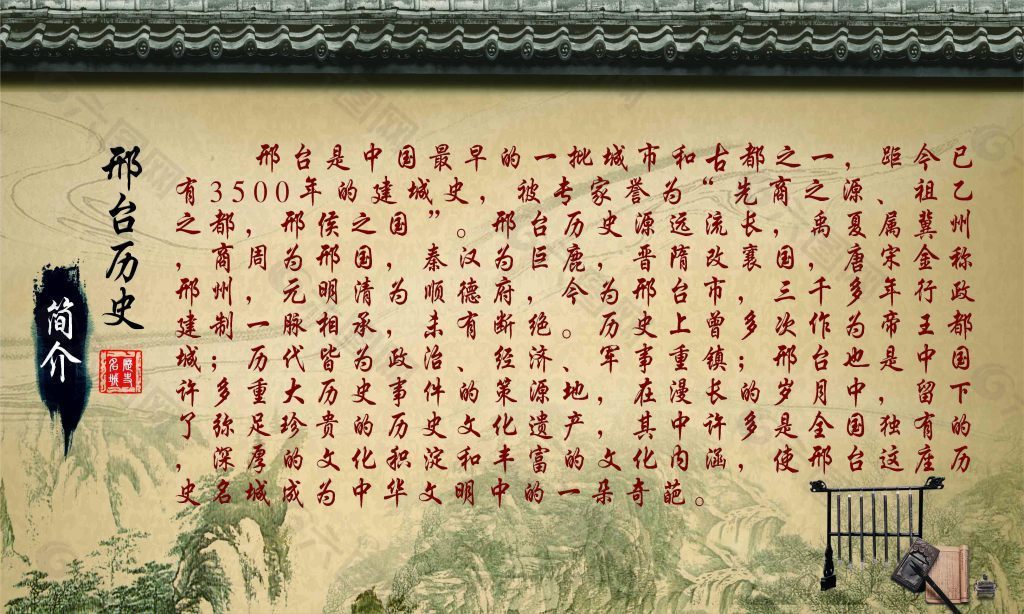 邢台历史
简介
历史名城
邢台是中国最早的一批城市和古都之一，距今已
有3500年的建城史，被专家誉为“先商之源、祖乙
之都，邢侯之国”。邢台历史源远流长，禹夏属冀州
，商周为邢国，秦汉为巨鹿，晋隋改襄国，唐宋金称
邢州，元明清为顺德府，今为邢台市，三千多年行政
建制一脉相承，未有断绝。历史上曾多次作为帝王都
城；历代皆为政治、经济、军事重镇；邢台也是中国
许多重大历史事件的策源地，在漫长的岁月中，留下
了弥足珍贵的历史文化遗产，其中许多是全国独有的
，深厚的文化积淀和丰富的文化内涵，使邢台这座历
史名城成为中华文明中的一朵奇葩。